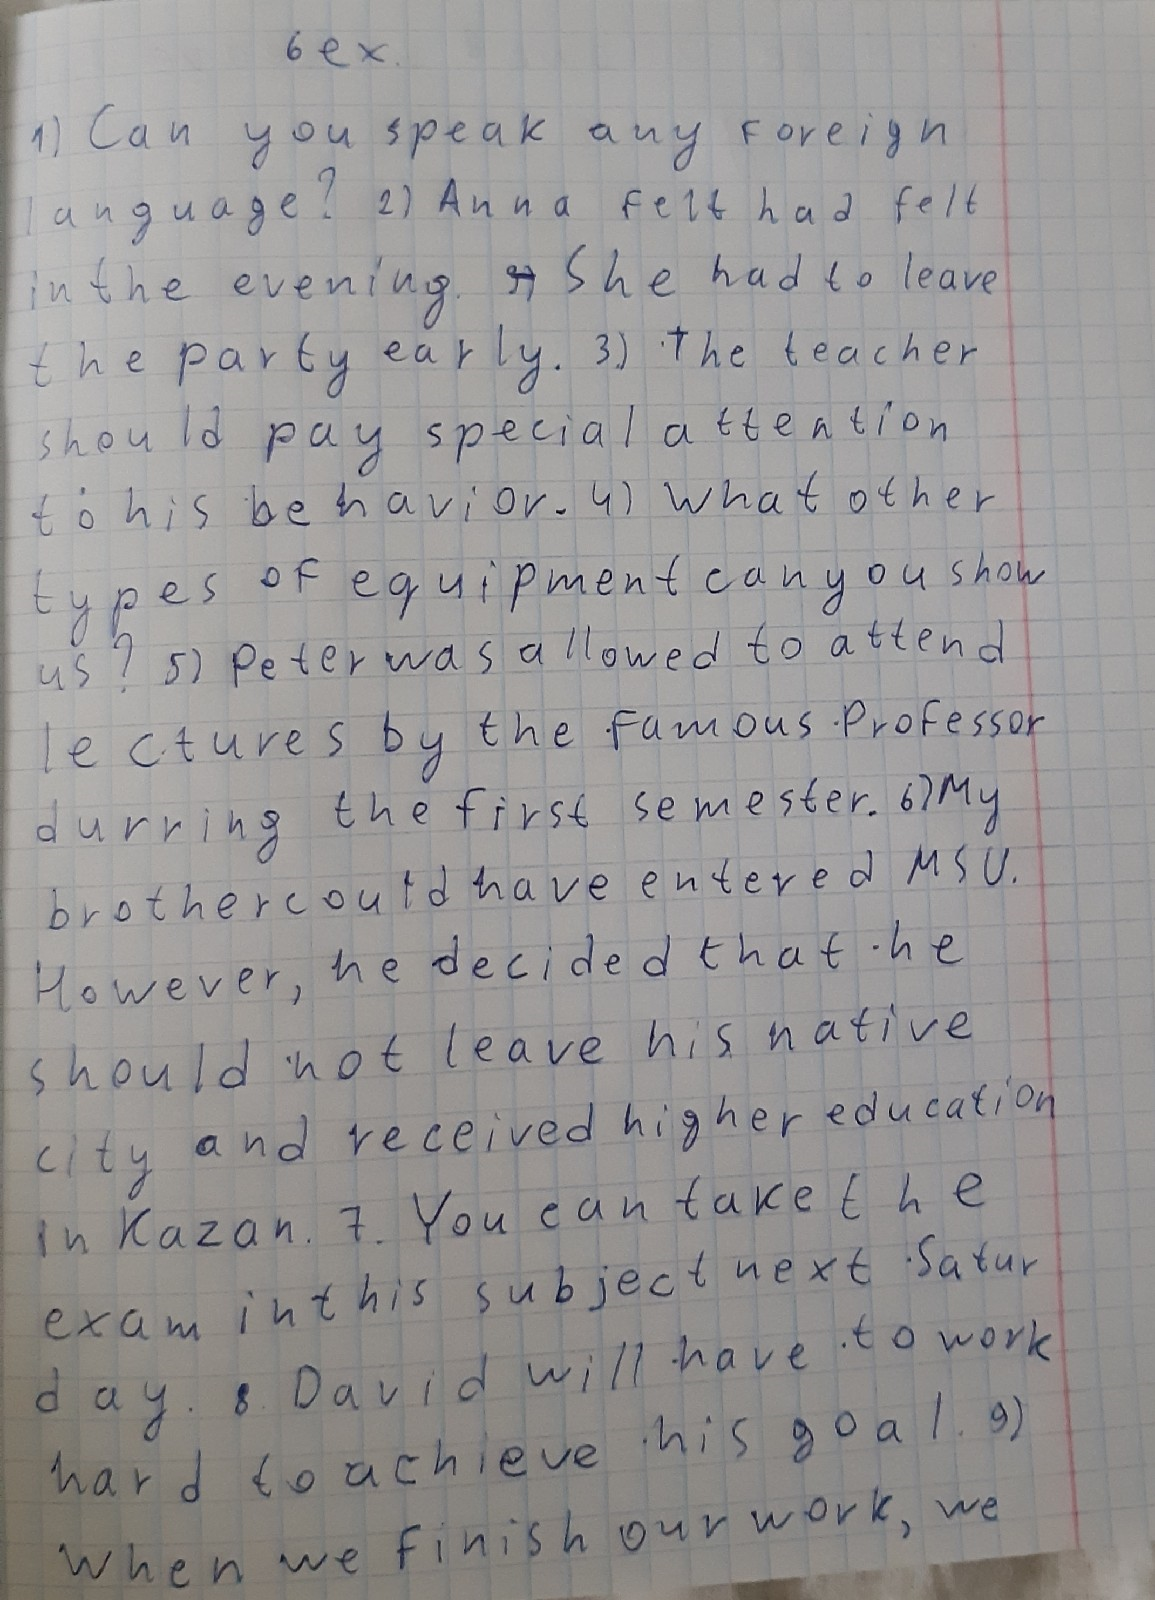 6 ex.
1) Can you speak any foreign
language? 2) Anna felt had felt
in the evening. She had to leave
the party early. 3) The teacher
should pay special attention
to his behavior. 4) What other
types of equipment can you show
us? 5) Peter was allowed to attend
lectures by the famous Professor
durring the first semester. 6) My
brother could have entered MSU.
However, he decided that he
should not leave his native
city and received higher education
in Kazan. 7. You can take the
exam in this subject next Satur
day. 8. David will have to work
hard to achieve his goal. 9)
When we finish our work, we